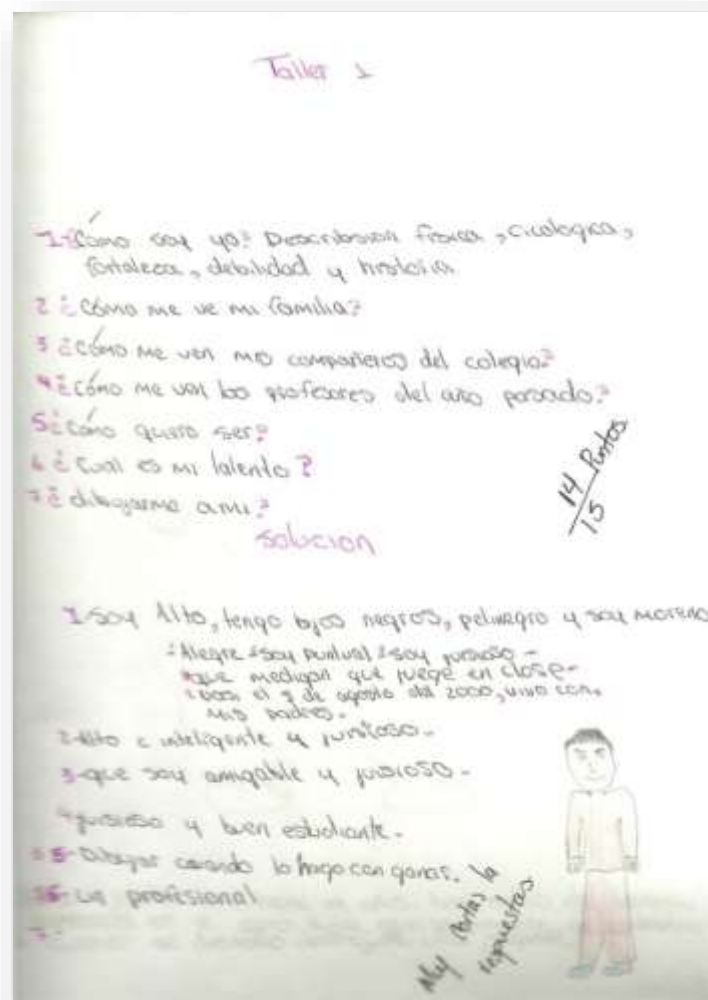 Taller 1
1-¿Cómo soy yo? Describsion fisica, cicologica,
fortaleza, debilidad y historia
2 ¿Cómo me ve mi familia?
3 ¿Cómo me ven mis compañeros del colegio?
4 ¿Cómo me ven los profesores del año pasado?
5 ¿Cómo quiero ser?
6 ¿Cual es mi talento?
7 ¿dibujarme a mi?
14 Puntos
15
Solucion
1-Soy Alto, tengo ojos negros, pelinegro y soy moreno
Alegre soy puntual soy juisioso -
que medigan que juege en clase-
el 9 de agosto del 2000, vivo con
mis padres.-
2-Alto e inteligente y juisioso.-
3-que soy amigable y juisioso-
4-juisioso y buen estudiante.-
5-Dibujar cuando lo hago con ganas.
6-un profesional
7-
Muy cortas la
respuestas